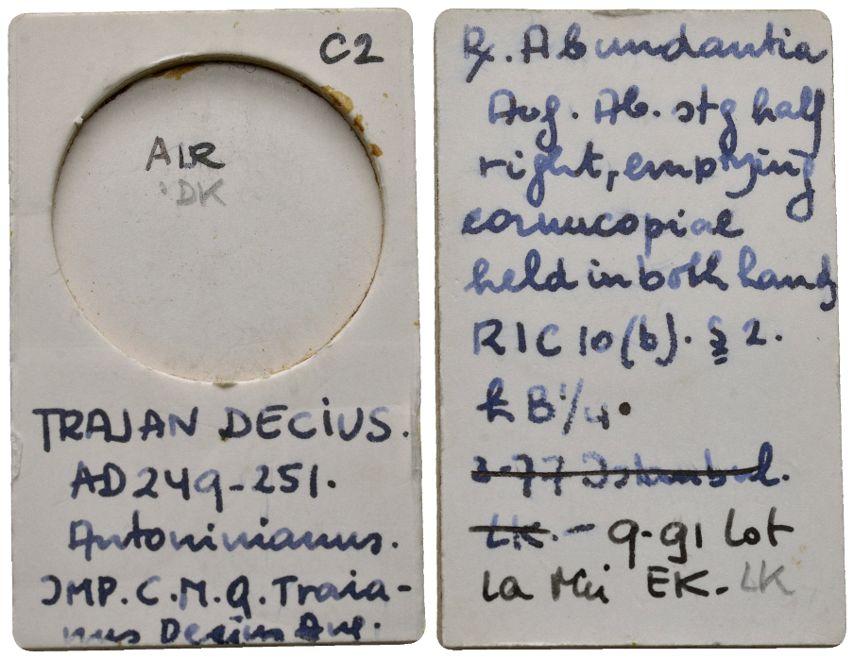 C2
AIR
DK
TRAJAN DECIUS.
AD 249-251.
Antoninianus.
IMP. C. M. Q. Traia-
nus Decius Aug.
R. Abundantia
Aug. Ab. stg half
right, emptying
cornucopiae
held in both hands
RIC 10(b). § 2.
B 1/4.
2-77 Istanbul.
LK. - 9-91 Lot
EK. LK